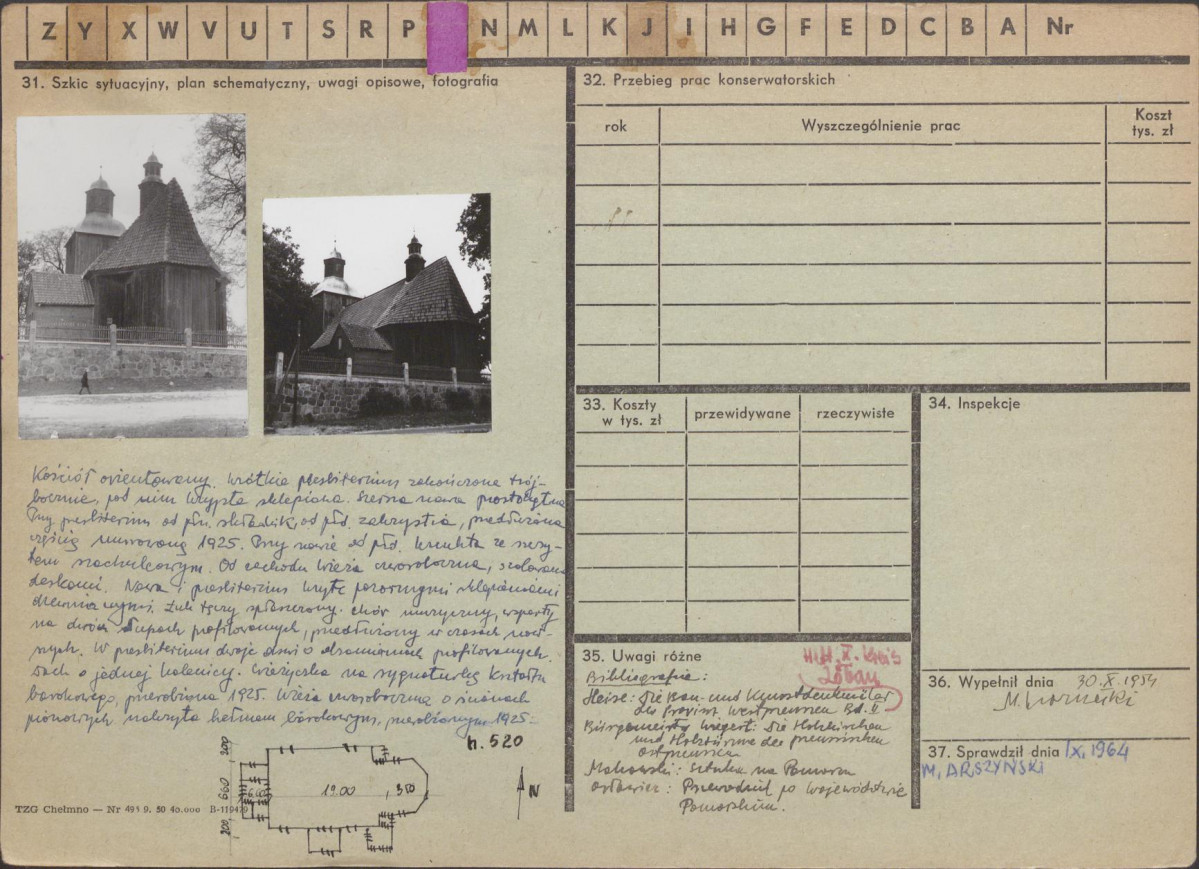 Z Y X W V U T S R P N M L K J I H G F E D C B A Nr
31. Szkic sytuacyjny, plan schematyczny, uwagi opisowe, fotografia
Kościół orientowany. Krótkie presbiterium zakończone trój-
bocznie, pod nim krypta sklepiona. Szersza nawa prostokątna
Przy presbiterium od płn. składzik, od płd. zakrystia, przedłużona
częścią murowaną 1925. Przy nawie od płd. kruchta ze szczy-
tem szachulcowym. Od zachodu wieża czworoboczna, szalowana
deskami. Nawa i presbiterium kryte pozornymi sklepieniami
drewnianymi. Łuk tęczy spłaszczony. Chór muzyczny, wsparty
na dwóch słupach profilowanych, przedłużony w czasach now-
szych. W presbiterium dwoje drzwi o obramieniach profilowanych.
Dach o jednej kalenicy. Wieżyczka na sygnaturkę kształtu
barokowego, przerobiona 1925. Wieża czworoboczna o ścianach
pionowych nakryta hełmem barokowym, przerobionym 1925.
n. 520
200
660
200
660
19.00
, 350
N
TZG Chełmno — Nr 493 9. 50 40.000 B-119479
32. Przebieg prac konserwatorskich
rok
Wyszczególnienie prac
Koszt
tys. zł
33. Koszty
w tys. zł
przewidywane
rzeczywiste
34. Inspekcje
35. Uwagi różne
Hft. X. Kreis
Löbau
Bibliografia:
Heise: Die Bau- und Kunstdenkmäler
der Provinz Westpreussen Bd. II
Bürgermeister Wiegert: Die Holzkirchen
und Holztürme der preussischen
Ostprovinzen
Makowski: Sztuka na Pomorzu
Orłowicz: Przewodnik po Województwie
Pomorskim.
36. Wypełnił dnia 30.X.1954
37. Sprawdził dnia IX. 1964
M. ARSZYŃSKI